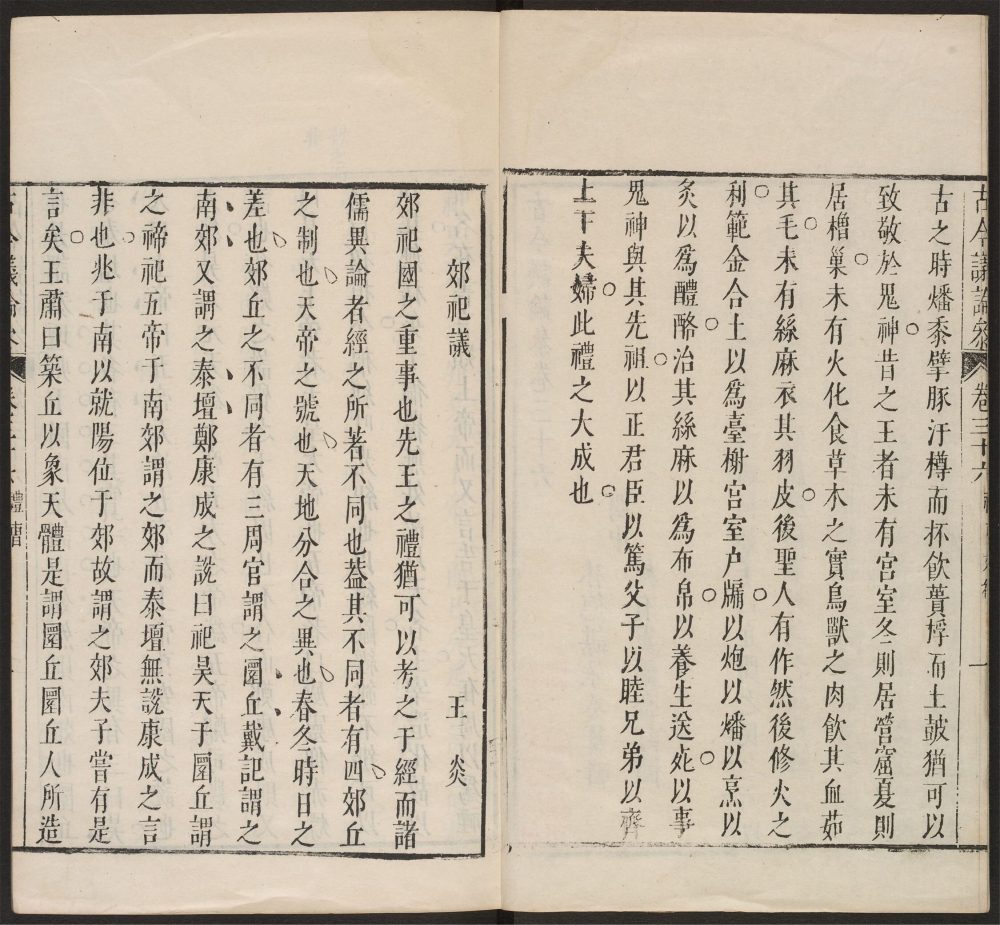 古今議論參 卷三十六 一
古之時燔黍擘豚汙樽而抔飲蕢桴而土皷猶可以
致敬於鬼神昔之王者未有宫室冬則居營窟夏則
居橧巢未有火化食草木之實鳥獸之肉飲其血茹
其毛未有絲麻衣其羽皮後聖人有作然後修火之
利範金合土以爲臺榭宫室户牖以炮以燔以烹以
炙以爲醴酪治其絲麻以爲布帛以養生送死以事
鬼神與其先祖以正君臣以篤父子以睦兄弟以齊
上下夫婦此禮之大成也
郊祀議 王炎
郊祀國之重事也先王之禮猶可以考之于經而諸
儒異論者經之所著不同也葢其不同者有四郊丘
之制也天帝之號也天地分合之異也春冬時日之
差也郊丘之不同者有三周官謂之圜丘戴記謂之
南郊又謂之泰壇鄭康成之説曰祀昊天于圜丘謂
之禘祀五帝于南郊謂之郊而泰壇無説康成之言
非也兆于南以就陽位于郊故謂之郊夫子嘗有是
言矣王肅曰築丘以象天體是謂圜丘圜丘人所造
古今議論參 卷三十六